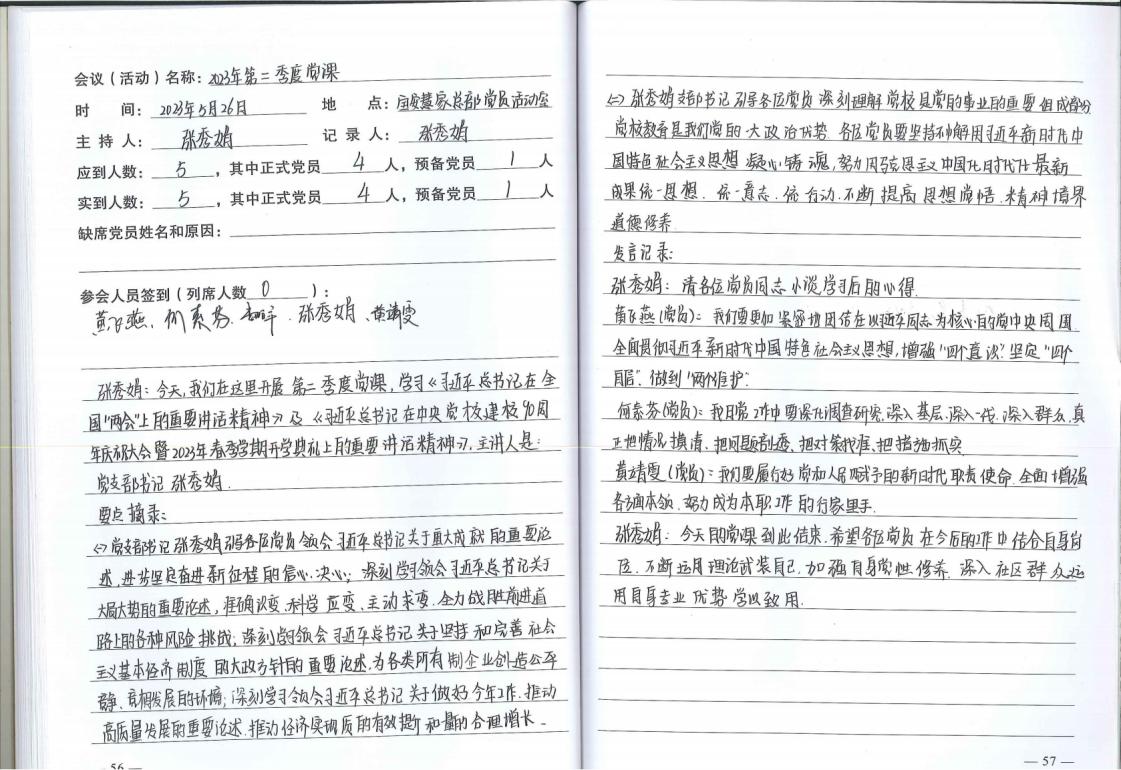 会议（活动）名称：2023年第二季度党课
时 间：2023年5月26日 地 点：宜安慧家总部党员活动室
主 持 人：张秀娟 记 录 人：张秀娟
应到人数：5，其中正式党员 4 人，预备党员 1 人
实到人数：5，其中正式党员 4 人，预备党员 1 人
缺席党员姓名和原因：
参会人员签到（列席人数 0 ）：
黄飞燕、何素芬、张秀娟、黄靖雯
张秀娟：今天，我们在这里开展第二季度党课，学习《习近平总书记在全
国"两会"上的重要讲话精神》及《习近平总书记在中央党校建校90周
年庆祝大会暨2023年春季学期开学典礼上的重要讲话精神》，主讲人是：
党支部书记 张秀娟.
要点摘录：
<一>党支部书记张秀娟引导各位党员领会习近平总书记关于重大成就的重要论
述，进一步坚定奋进新征程的信心、决心；深刻学习领会习近平总书记关于
大局大势的重要论述，准确识变、科学应变、主动求变、全力战胜前进道
路上的各种风险挑战；深刻学习领会习近平总书记关于坚持和完善社会
主义基本经济制度的大政方针的重要论述，为各类所有制企业创造公平
竞争、竞相发展的环境；深刻学习领会习近平总书记关于做好今年工作、推动
高质量发展的重要论述.推动经济实现质的有效提升和量的合理增长.
56
<二>张秀娟支部书记引导各位党员深刻理解党校是党的事业的重要组成部分
党校教育是我们党的一大政治优势.各位党员要坚持不懈用习近平新时代中
国特色社会主义思想凝心铸魂，努力用马克思主义中国化时代化最新
成果统一思想、统一意志、统一行动.不断提高思想觉悟、精神境界
道德修养
发言记录：
张秀娟：请各位党员同志小谈学习后的心得.
黄飞燕（党员）：我们要更加紧密地团结在以习近平同志为核心的党中央周围
全面贯彻习近平新时代中国特色社会主义思想，增强"四个意识"、坚定"四个
自信"、做到"两个维护".
何素芬（党员）：我日常工作中要深化调查研究，深入基层、深入一线、深入群众，真
正把情况摸清、把问题剖透、把对策找准、把措施抓实
黄靖雯（党员）：我们要履行好党和人民赋予的新时代职责使命.全面增强
各方面本领.努力成为本职工作的行家里手.
张秀娟：今天的党课到此结束.希望各位党员在今后的工作中结合自身岗
位、不断运用理论武装自己.加强自身党性修养、深入社区群众运
用自身专业优势学以致用.
— 57 —